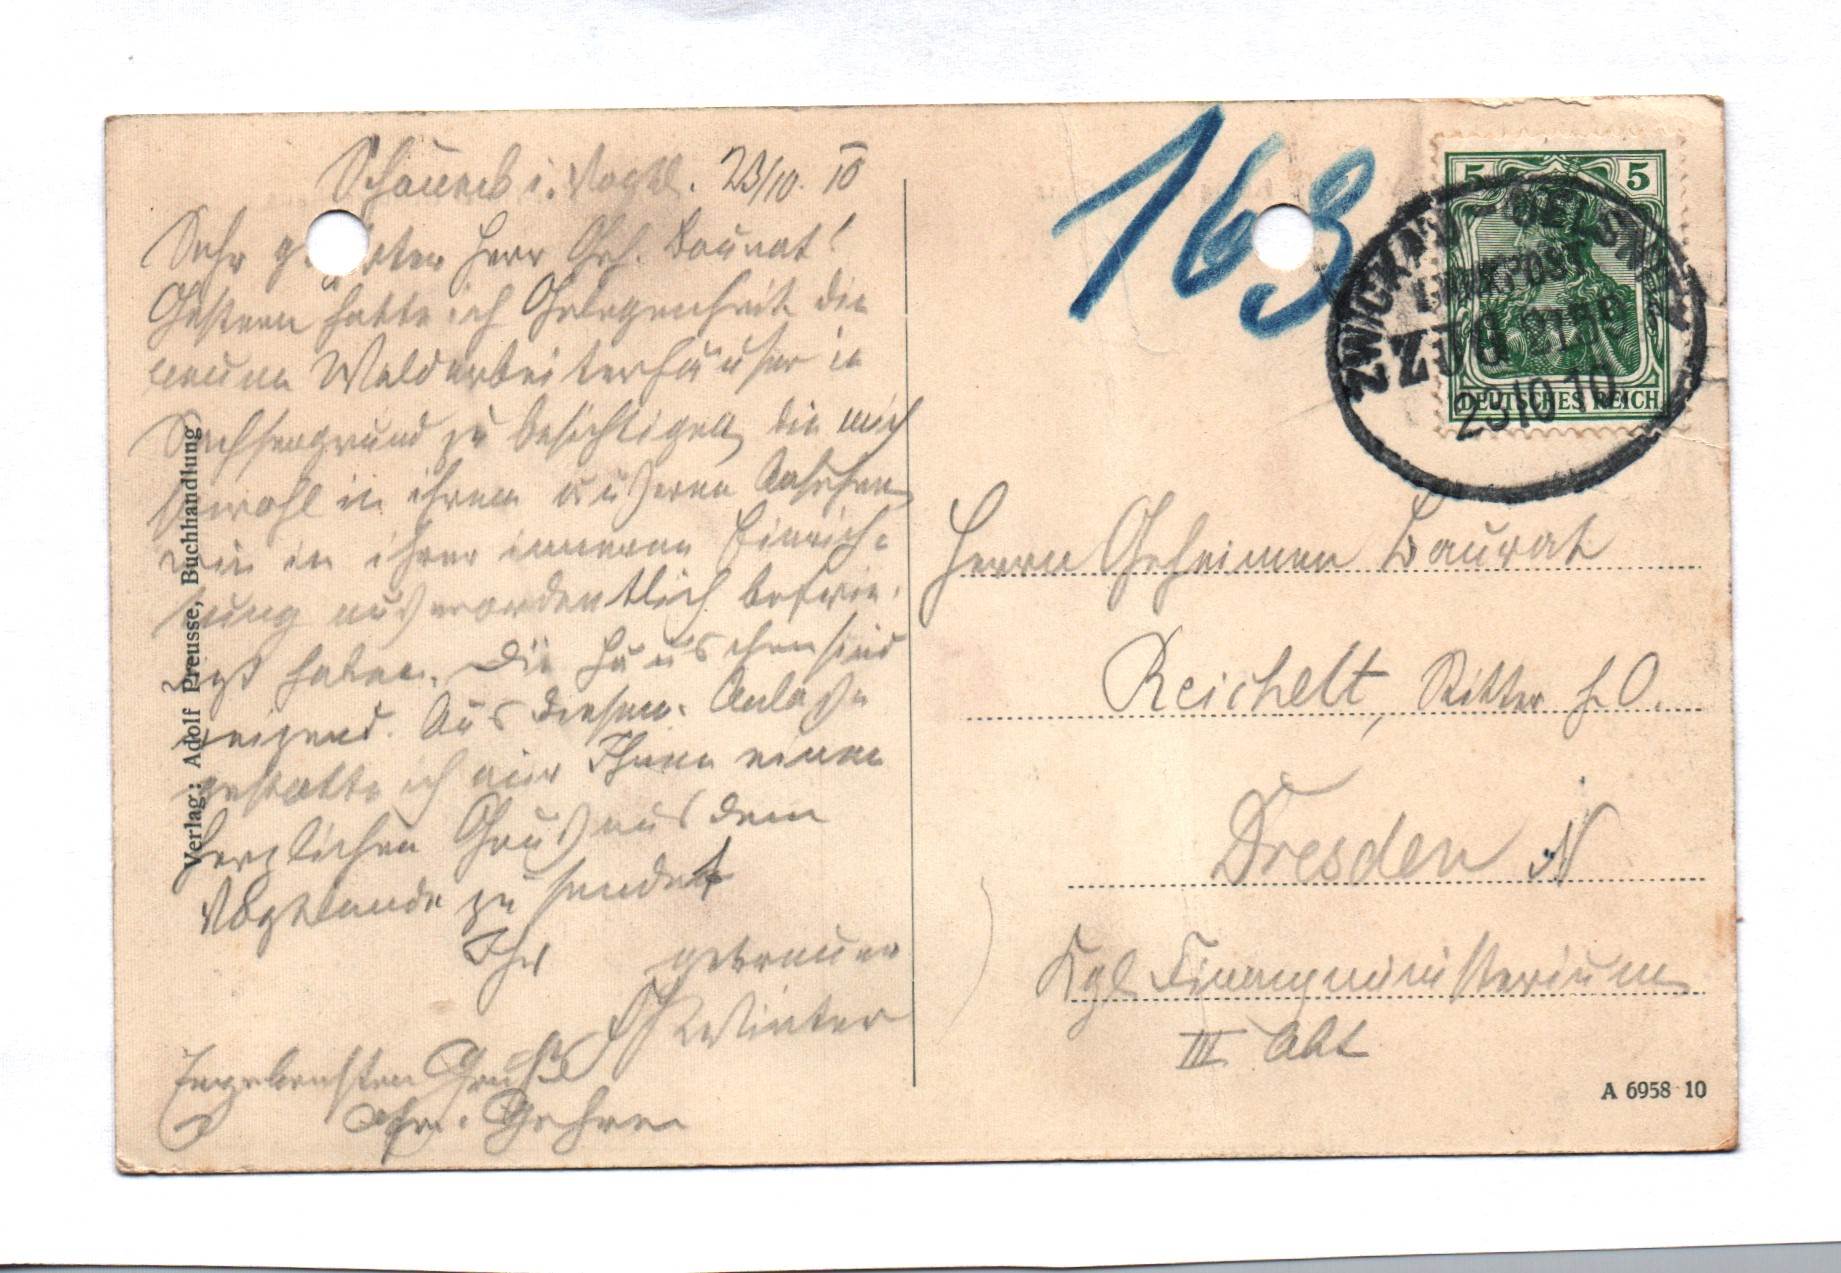 Schöneck i. Vogtl. 23/10. 10
Sehr geehrter Herr Geh. Baurat!
Gestern hatte ich Gelegenheit die
neuen Waldarbeiterhäuser in
Sachsengrund zu besichtigen, die mich
sowohl in ihrem äußeren Ansehen
wie in ihrer inneren Einrich-
tung außerordentlich befrie-
digt haben. Die Häuschen sind
reizend. Aus diesem Anlaße
gestatte ich mir Ihnen einen
herzlichen Gruß aus dem
Vogtlande zu senden
Ihr getreuer
Winter
Ergebensten Gruß
Gehren
Verlag: Adolf Preusse, Buchhandlung
163
5 5
DEUTSCHES REICH
ZWICKAU - OELSNITZ
BAHNPOST
ZUG
23 10 10
Herrn Geheimen Baurat
Reichelt, Ritter h. O.
Dresden N
Kgl Finanzministerium
III. Abt
A 6958 10